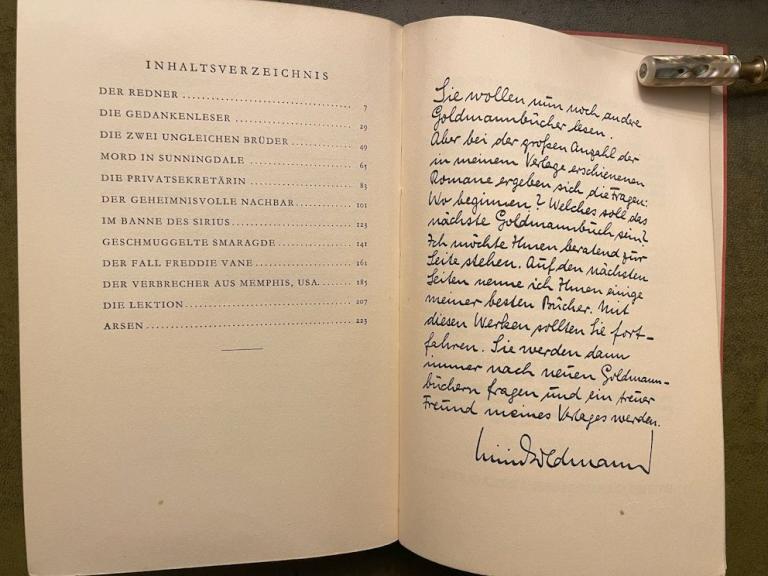 INHALTSVERZEICHNIS
DER REDNER 7
DIE GEDANKENLESER 29
DIE ZWEI UNGLEICHEN BRÜDER 49
MORD IN SUNNINGDALE 65
DIE PRIVATSEKRETÄRIN 83
DER GEHEIMNISVOLLE NACHBAR 101
IM BANNE DES SIRIUS 123
GESCHMUGGELTE SMARAGDE 141
DER FALL FREDDIE VANE 161
DER VERBRECHER AUS MEMPHIS, USA. 185
DIE LEKTION 207
ARSEN 223
Sie wollen nun noch andre
Goldmannbücher lesen.
Aber bei der großen Anzahl der
in meinem Verlage erschienenen
Romane ergeben sich die Fragen:
Wo beginnen? Welches soll das
nächste Goldmannbuch sein?
Ich möchte Ihnen beratend zur
Seite stehen. Auf den nächsten
Seiten nenne ich Ihnen einige
meiner besten Bücher. Mit
diesen Werken sollten Sie fort-
fahren. Sie werden dann
immer nach neuen Goldmann-
büchern fragen und ein treuer
Freund meines Verlages werden.
Goldmann